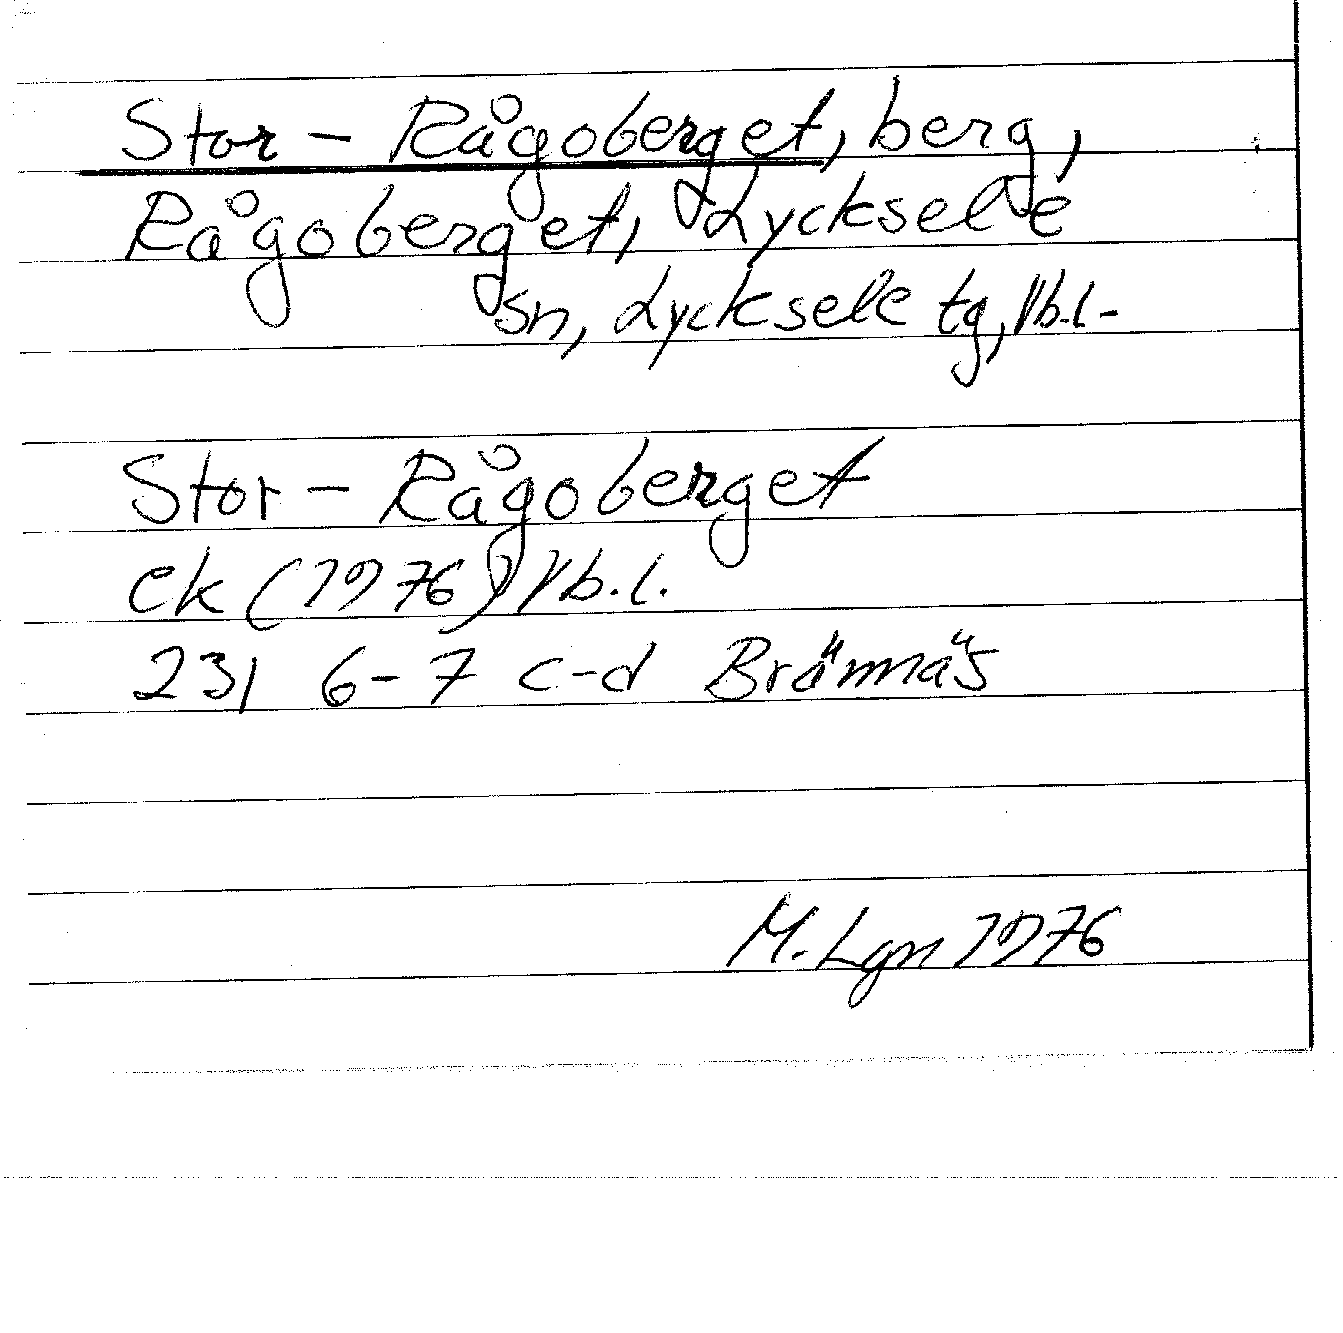 Stor-Rågoberget, berg,
Rågoberget, Lycksele
sn, Lycksele tg, Vb.l.
Stor-Rågoberget
ek (1976) Vb.l.
23I 6-7 c-d Brännäs
M. Lgn 1976